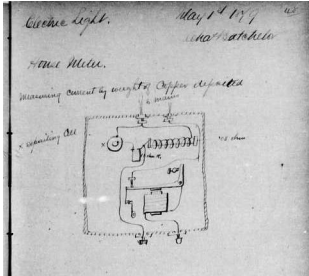 Electric Light. May 1st 1879
Chas Batchelor
House Meter.
Measuring current by weight of Copper deposited
to main
x depositing cell